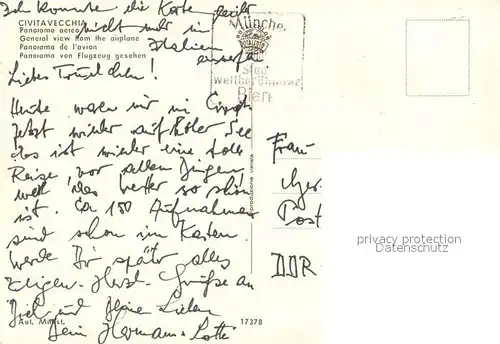 Ich konnte die Karte
nicht mehr in
Italien
CIVITAVECCHIA
Panorama aereo
General view from the airplane
Panorama de l'avion
Panorama von Flugzeug gesehen
München
Stadt
weltberühmter
Bier
Liebes Trudchen!
Heute waren wir in Civit.
Jetzt wieder auf hoher See
das ist wieder eine tolle
Reise, vor allen Dingen
weil das Wetter so schön
ist. Ca 150 Aufnahmen
sind schon im Kasten.
Werde Dir später alles
zeigen. Herzl. Grüße an
Dich und Deine Lieben
Dein Hermann + Lotte
Aut. Minist.
17378
Frau
Ger.
Post
DDR
privacy protection
Datenschutz